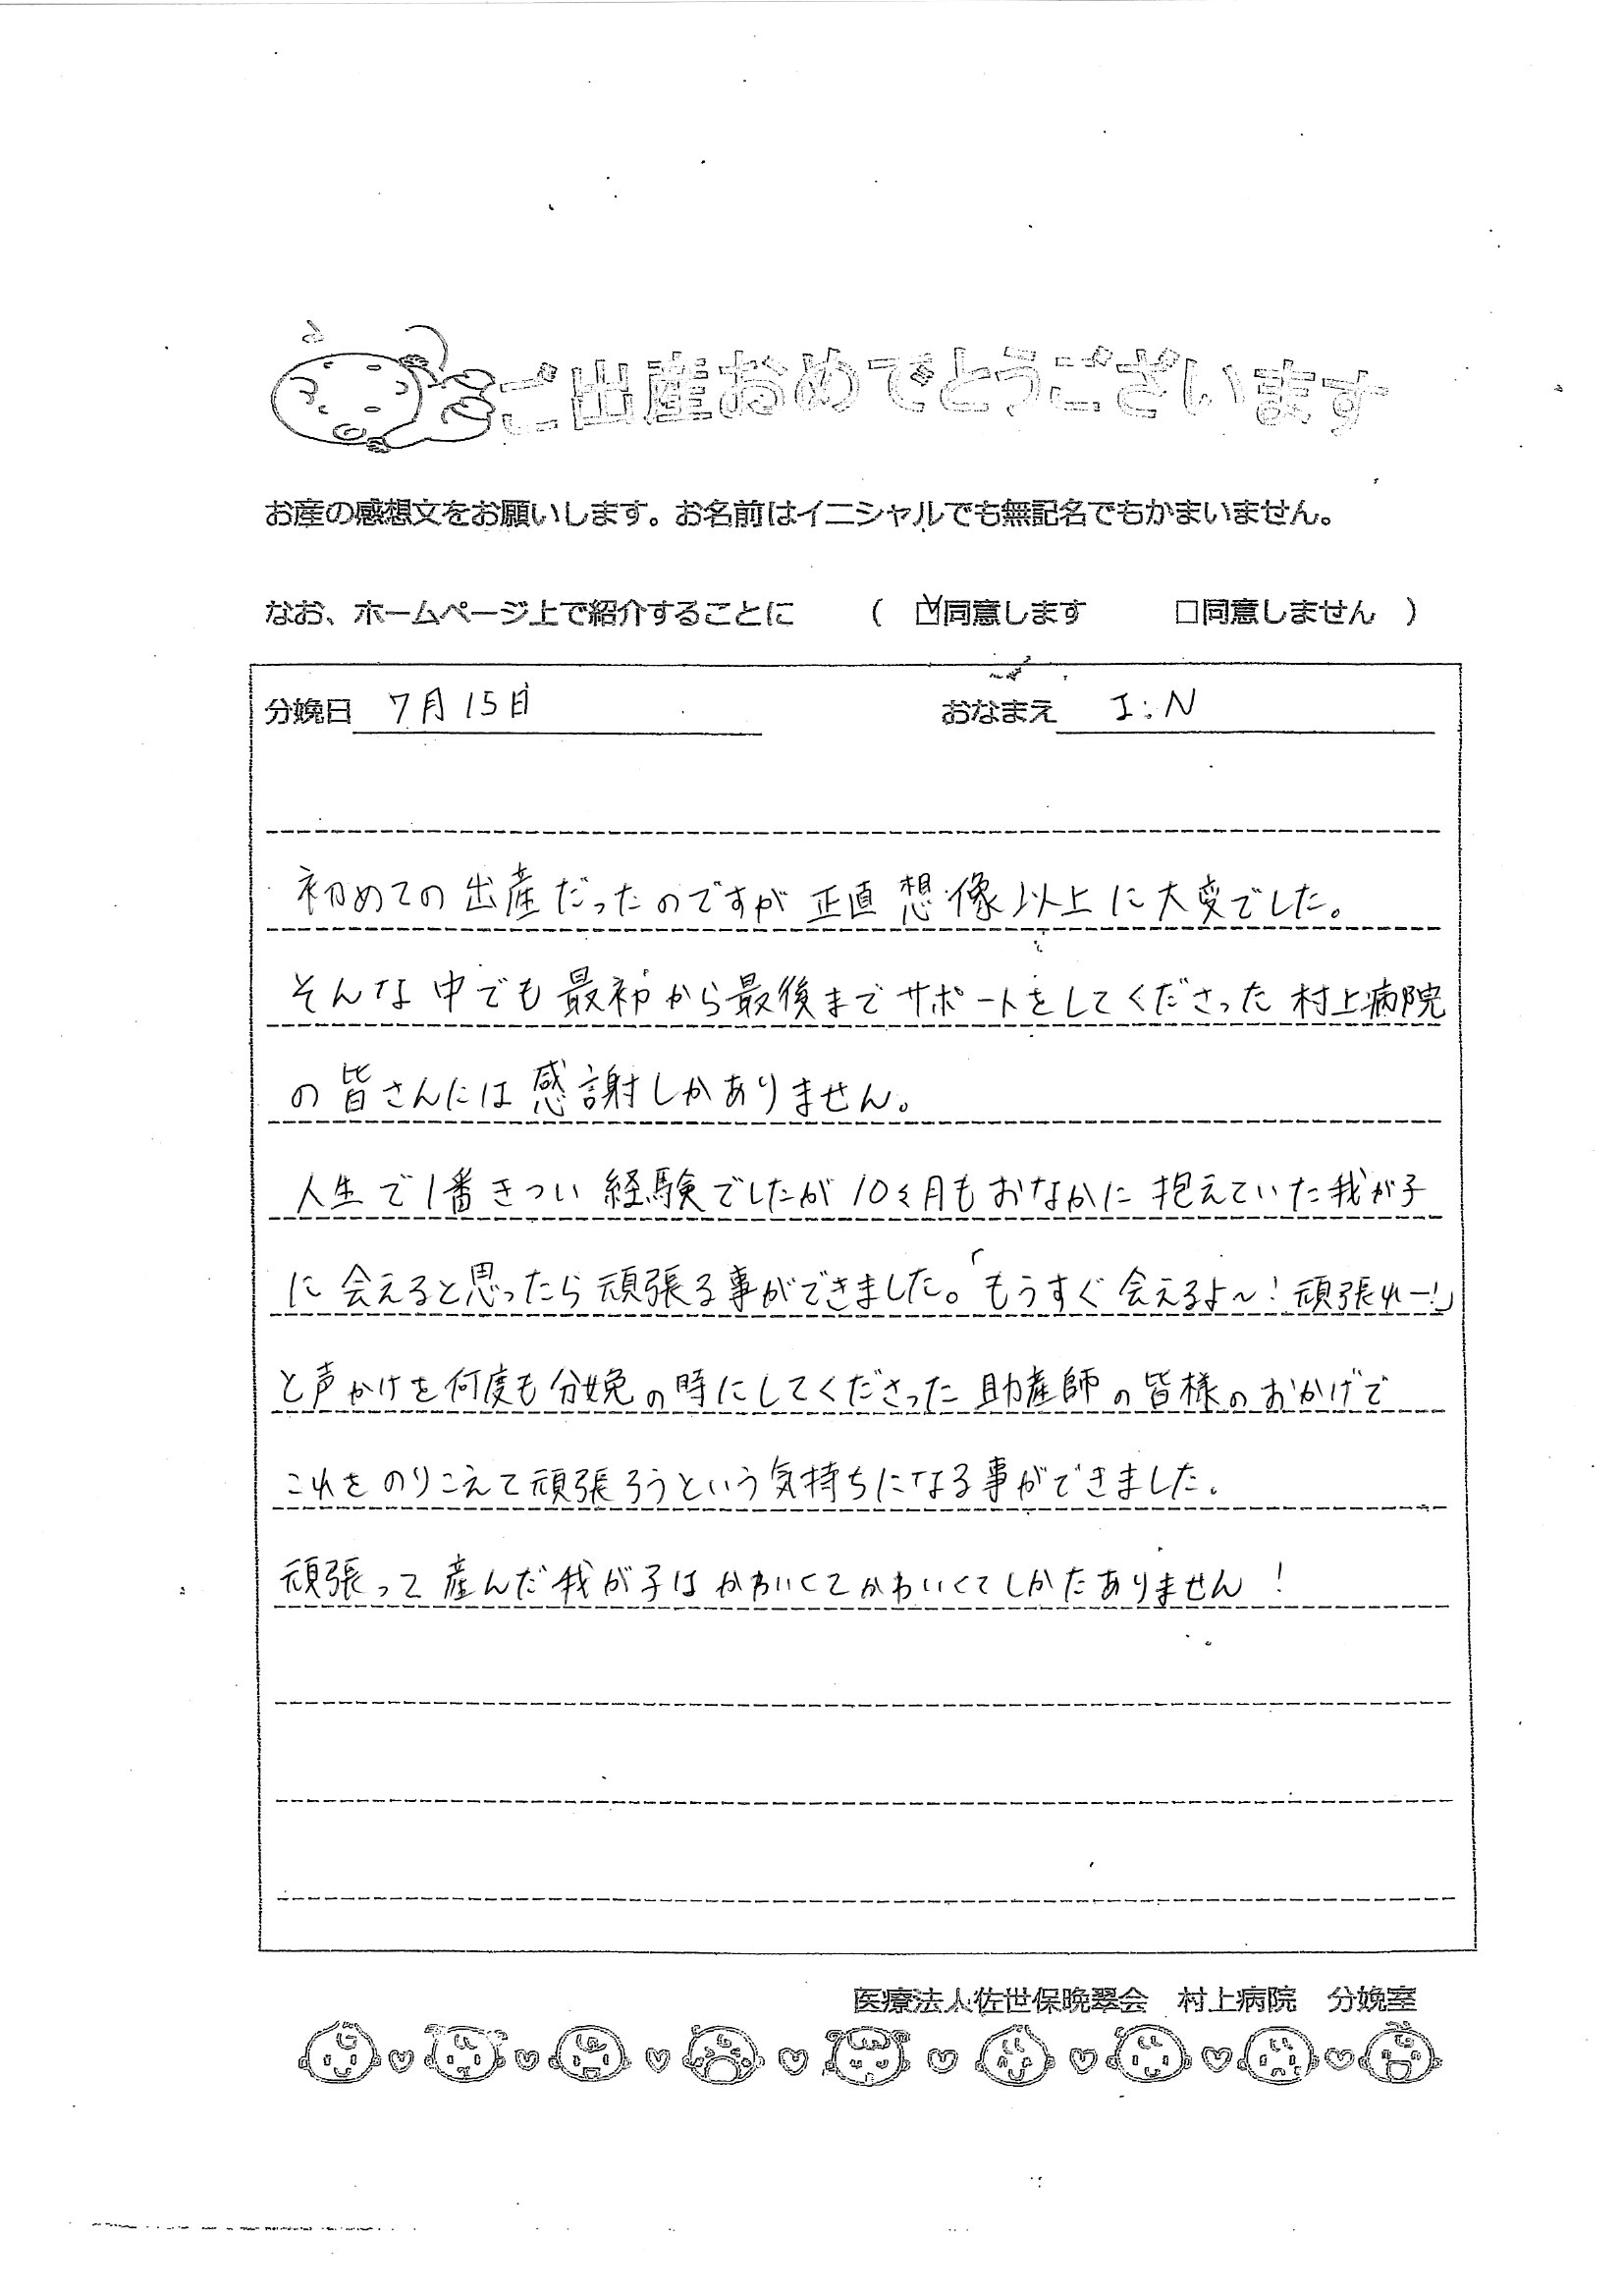 ご出産おめでとうございます
お産の感想文をお願いします。お名前はイニシャルでも無記名でもかまいません。
なお、ホームページ上で紹介することに （ ☑同意します □同意しません ）
分娩日 7月15日 おなまえ I:N
初めての出産だったのですが正直想像以上に大変でした。
そんな中でも最初から最後までサポートをしてくださった村上病院
の皆さんには感謝しかありません。
人生で1番きつい経験でしたが10ヶ月もおなかに抱えていた我が子
に会えると思ったら頑張る事ができました。「もうすぐ会えるよ〜！頑張れー！」
と声かけを何度も分娩の時にしてくださった助産師の皆様のおかげで
これをのりこえて頑張ろうという気持ちになる事ができました。
頑張って産んだ我が子はかわいくてかわいくてしかたありません！
医療法人佐世保晩翠会 村上病院 分娩室